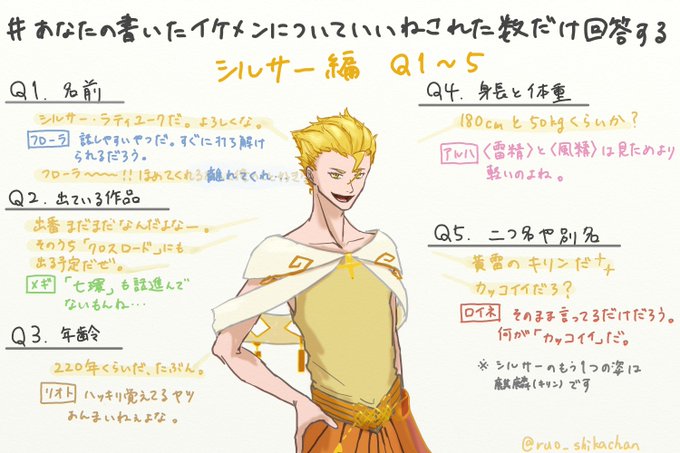 #あなたの書いたイケメンについていいねされた数だけ回答する
シルサー編 Q1～5
Q1. 名前
シルサー・ラティユークだ。よろしくな。
フローラ 話しやすいやつだ。すぐに打ち解け
られるだろう。
フローラ～～～!! ほめてくれる 離れてくれ
Q2. 出ている作品
出番まだまだなんだよなー。
そのうち「クロスロード」にも
出る予定だぜ。
メギ 「七環」も話進んで
ないもんね…
Q3. 年齢
220年くらいだ、たぶん。
リオト ハッキリ覚えてるヤツ
あんまいねぇよな。
Q4. 身長と体重
180cmと50kgくらいか?
アルハ 〈雷精〉と〈風精〉は見ためより
軽いのよね。
Q5. 二つ名や別名
黄雷のキリンだ
カッコイイだろ?
ロイネ そのまま言ってるだけだろう。
何が「カッコイイ」だ。
※シルサーのもう1つの姿は
麒麟(キリン)です
@ruo_shikachan